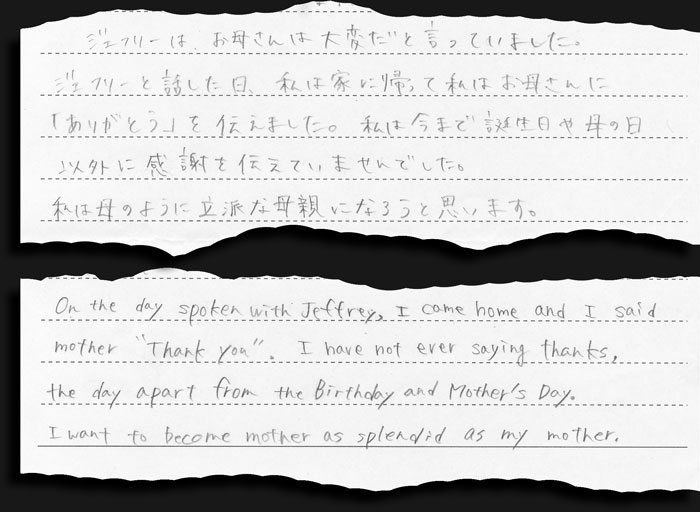 ジェフリーは、お母さんは大変だと言っていました。
ジェフリーと話した日、私は家に帰って私はお母さんに
「ありがとう」を伝えました。私は今まで誕生日や母の日
以外に感謝を伝えていませんでした。
私は母のように立派な母親になろうと思います。
On the day spoken with Jeffrey, I came home and I said
mother "Thank you". I have not ever saying thanks,
the day apart from the Birthday and Mother's Day.
I want to become mother as splendid as my mother.